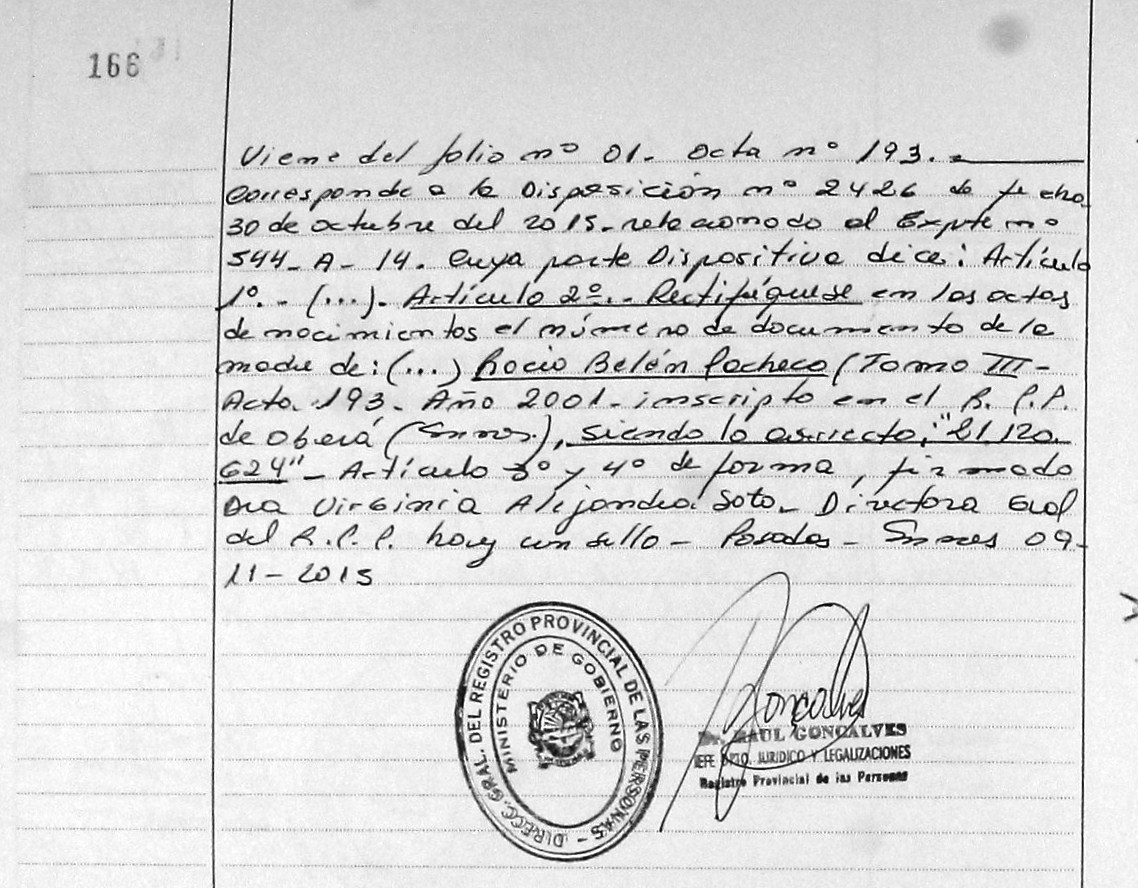 166
Viene del folio nº 01. Acta nº 193.
Corresponde a la Disposición nº 2426 de fecha
30 de octubre del 2015. relacionado al Expte nº
544-A-14. Cuya parte Dispositiva dice: Artículo
1º.- (...). Artículo 2º.- Rectifíquese en las actas
de nacimientos el número de documento de la
madre de: (...) Rocio Belén Pacheco (Tomo III-
Acta 193. Año 2001. inscripto en el R.P.P.
de Oberá (Mnes.), siendo lo correcto: "21.120.
624" - Artículo 3º y 4º de forma, firmado
Dra Virginia Alejandra Soto. Directora Gral
del R.P.P. hay un sello - Posadas - Mnes 09-
11-2015
DIRECC. GRAL. DEL REGISTRO PROVINCIAL DE LAS PERSONAS -
MINISTERIO DE GOBIERNO
Goncalves
Dr. RAUL GONCALVES
JEFE DPTO. JURIDICO Y LEGALIZACIONES
Registro Provincial de las Personas